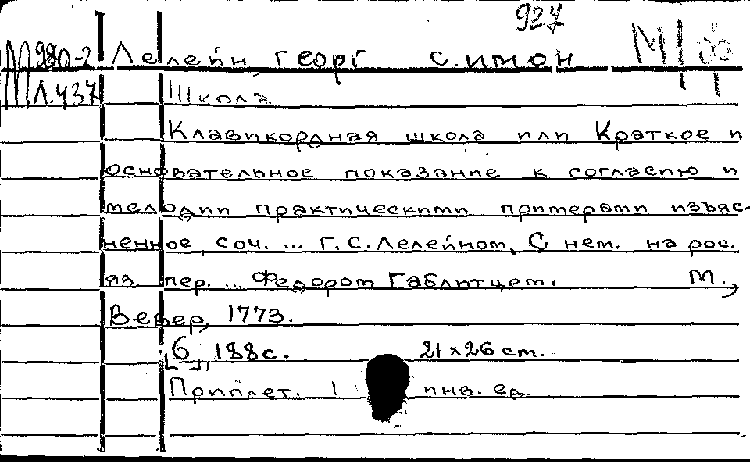 927
М980-2 Лелейн, Георг Симон М/ф
Л437 Школа
Клавикордная школа или Краткое и
основательное показание к согласию и
мелодии практическими примерами изъяс-
ненное, соч. ... Г.С.Лелейном, С нем. на рос.
яз. пер. ... Федором Габлитцем. М.,
Вевер, 1773.
[6], 188 с. 21 x 26 см.
Приплет. 1 инв. ед.